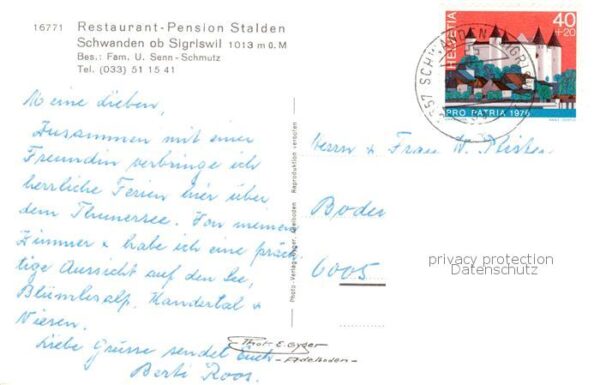 16771 Restaurant-Pension Stalden
Schwanden ob Sigriswil 1013 m ü. M
Bes.: Fam. U. Senn-Schmutz
Tel. (033) 51 15 41
Meine Lieben,
Zusammen mit einer
Freundin verbringe ich
herrliche Ferien hier über
dem Thunersee. Von meinem
Zimmer habe ich eine präch-
tige Aussicht auf den See,
Blümlisalp, Kandertal +
Niesen.
Liebe Grüsse sendet Euch
Berti Roos.
Photo-Verlag Gyger Adelboden Reproduktion verboten
Phot. E. Gyger
Adelboden
HELVETIA
40
+20
PRO PATRIA 1976
SCHWANDEN
Herrn + Frau W.
6005
privacy protection
Datenschutz